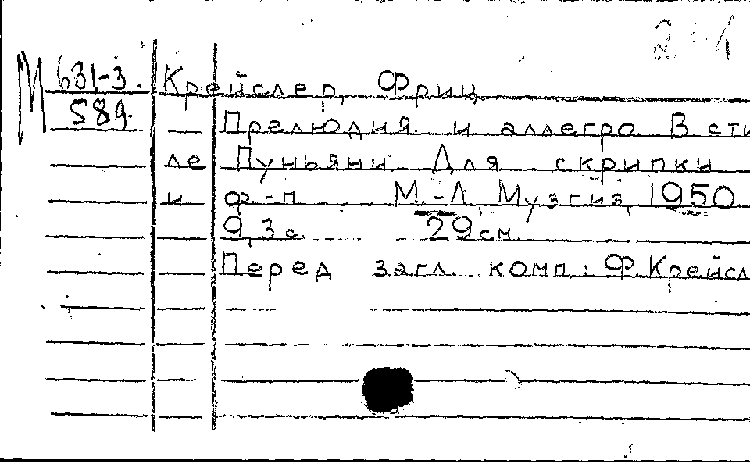 2-1
М 631-3. Крейслер, Фриц
589. Прелюдия и аллегро В сти
ле Пуньяни. Для скрипки
и ф.-п. М.-Л. Музгиз, 1950
9,3 с. 29 см.
Перед загл. комп.: Ф. Крейсл